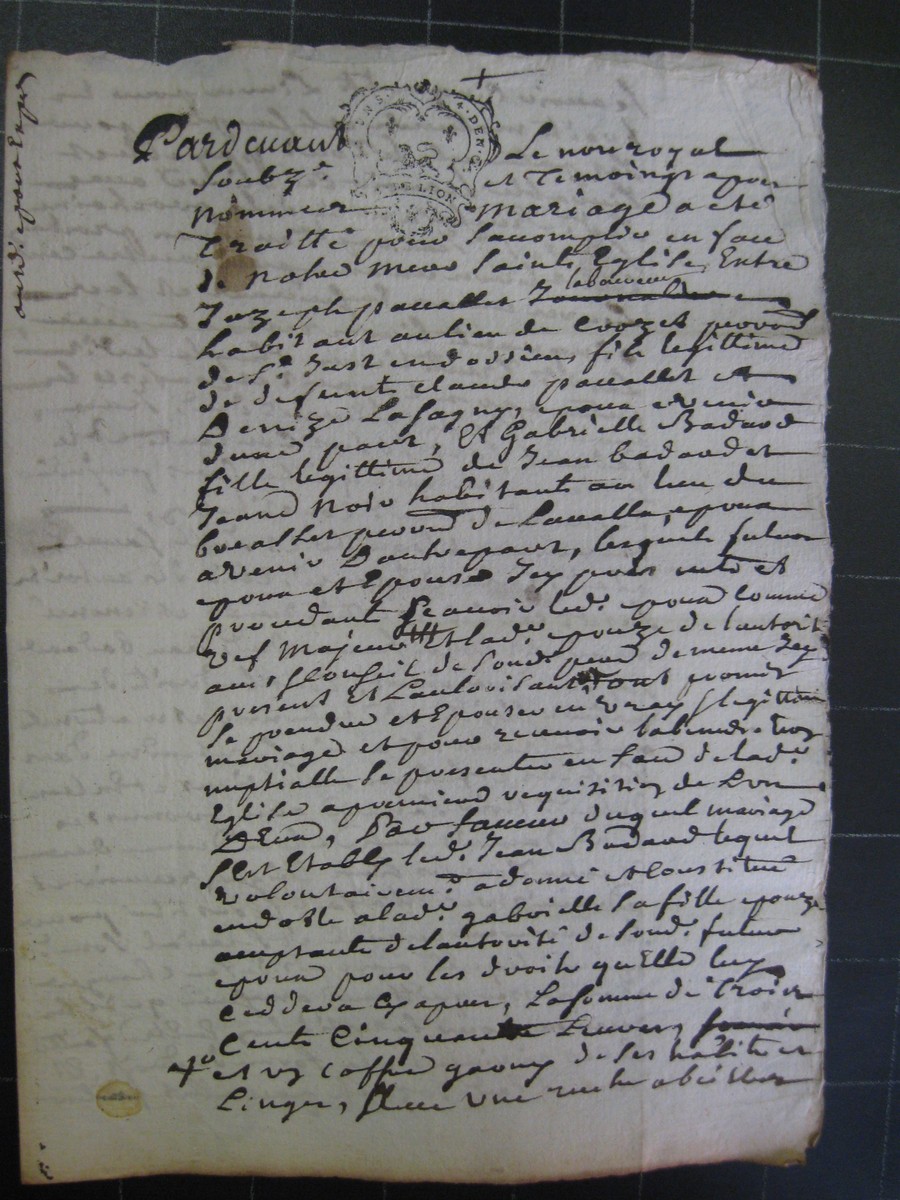 Pardevant Le no.re royal
Soubz.é et Temoings apres
Nommer mariage a ete
Traitté pour Saccomplir en face
de nostre mere Sainte Eglise Entre
laboureur
Jozeph pauallet
habitant au lieu de Crozet parroi
de S.t Just en dossieu, fils legittime
de deffunt claude pauallet et
Denize Lafagny, epoux avenir
dune part, Et Gabrielle Badard
fille legittime de Jean badard et
Jeane Noir habitants au lieu du
parroi.e de Lavalla, epouze
avenir Dautre part, lesquels futurs
epoux et Epouse Icy presents et
procedant Scavoir led. epoux comme
Majeur Et lad.e epouze de lautorit
et Conseil de Sond. pere de meme Icy
present Et Lautorisant, Ont promis
Se prendre et Epouser en vray / legittime
mariage et pour recevoir la benediction
nuptialle Se presenter en face de lad.e
Eglise a premiere requisition de Lun
Deux, En faveur duquel mariage
Sest Etably led. Jean Badard lequel
volontairem.t a donné et Constitué
en dotte a lad.e gabrielle Sa fille epouze
acceptante de lautorité de Sond. futur
epoux pour les droits quelle luy
Ceddera Cy apres, La Somme de Trois
Cents Cinquante Livres,
et un Coffre garny de Ses habits et
Linges, Plus une ruche abeilles
DE LION
DEN.